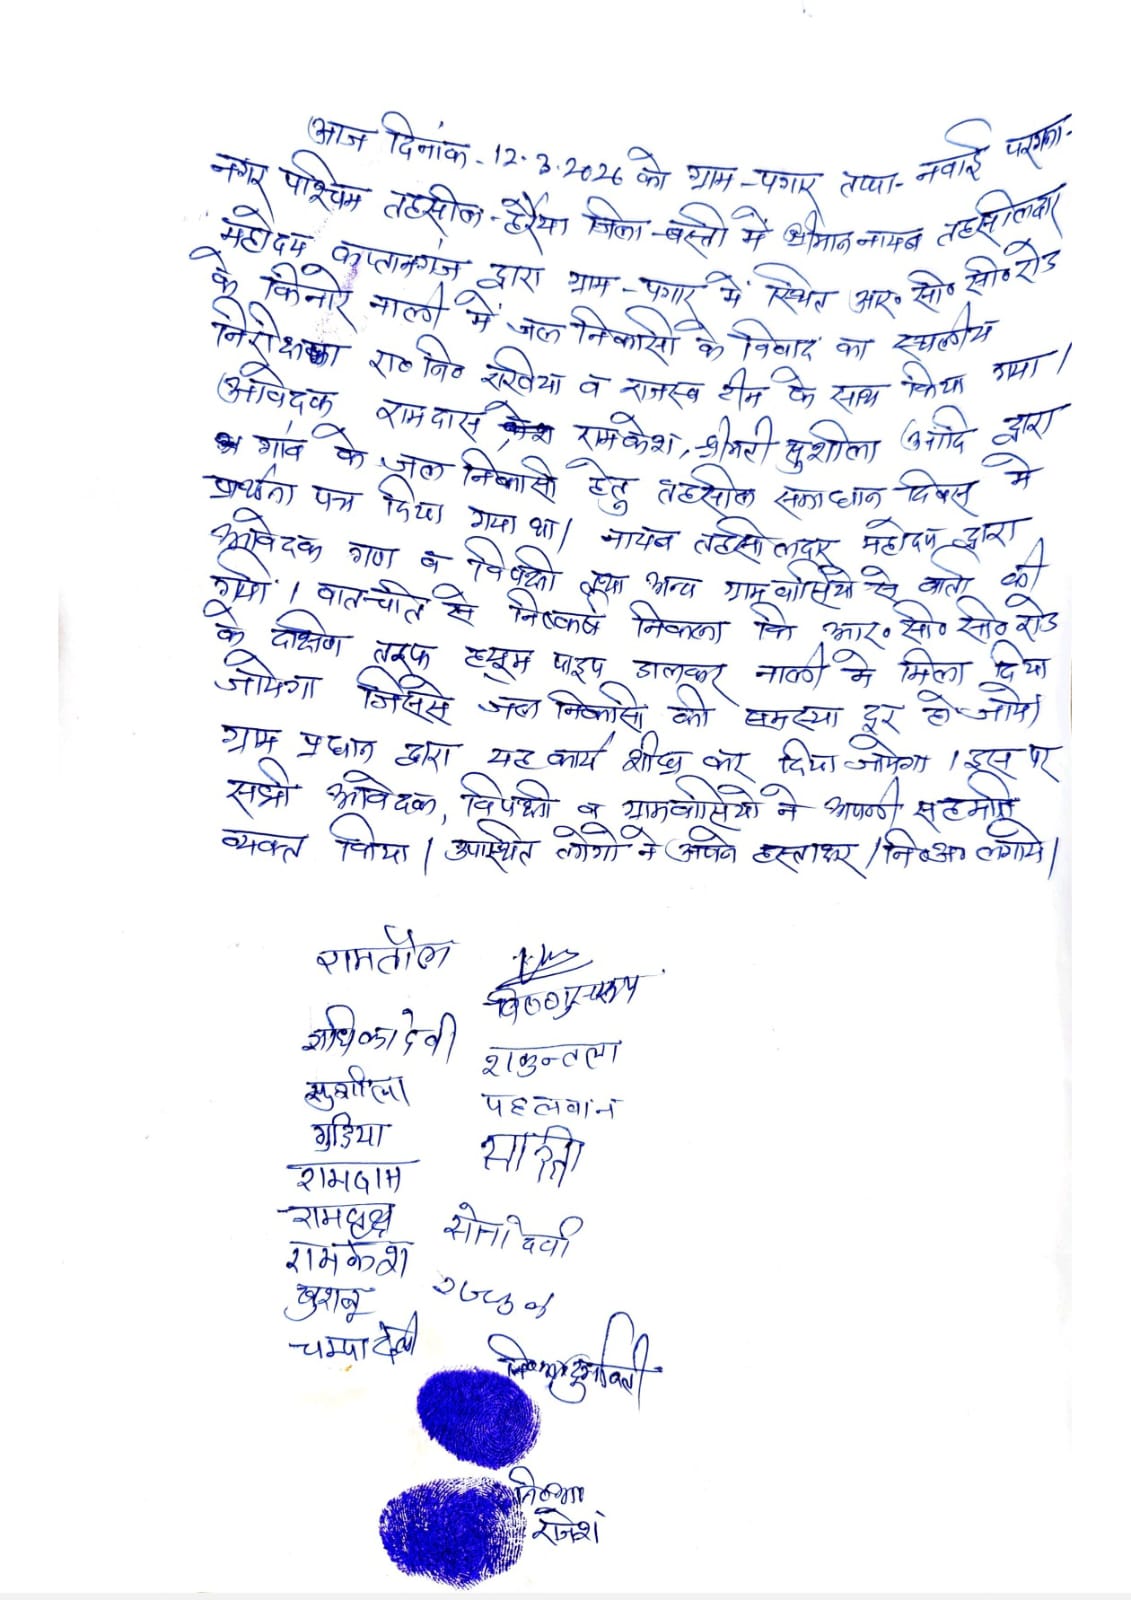 आज दिनांक - 12.3.2026 को ग्राम - पगार तप्पा - नवाई परगना -
नगर पश्चिम तहसील - हर्रैया जिला - बस्ती में श्रीमान नायब तहसीलदार
महोदय कप्तानगंज द्वारा ग्राम - पगार में स्थित आर० सी० सी० रोड
के किनारे नाली में जल निकासी के विवाद का स्थलीय
निरीक्षण रा० नि० रखिया व राजस्व टीम के साथ किया गया।
आवेदक रामदास, रामकेश, श्रीमती सुशीला आदि द्वारा
गांव के जल निकासी हेतु तहसील समाधान दिवस में
प्रार्थना पत्र दिया गया था। नायब तहसीलदार महोदय द्वारा
आवेदक गण व विपक्षी तथा अन्य ग्रामवासियों से वार्ता की
गयी। बातचीत से निष्कर्ष निकला कि आर० सी० सी० रोड
के दक्षिण तरफ ह्यूम पाइप डालकर नाली में मिला दिया
जायेगा जिससे जल निकासी की समस्या दूर हो जाये।
ग्राम प्रधान द्वारा यह कार्य शीघ्र कर दिया जायेगा। इस पर
सभी आवेदक, विपक्षी व ग्रामवासियों ने अपनी सहमति
व्यक्त किया। उपस्थित लोगों ने अपने हस्ताक्षर / नि०अं० लगाये।
रामतौल
विष्णुस्वरूप
राधिका देवी
शकुन्तला
सुशीला
पहलवान
गुड़िया
रामदास
रामवृक्ष
सोना देवी
रामकेश
खुशबू
चम्पा देवी
नि०अं०
राजेश